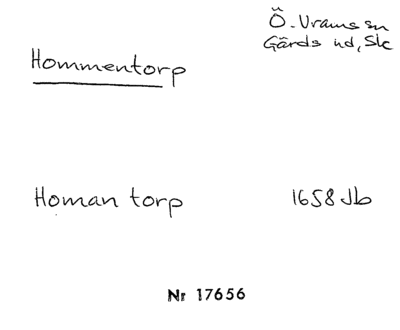 Ö. Vrams sn
Gärds hd, Sk
Hommentorp
Homan torp 1658 Jb
Nr 17656